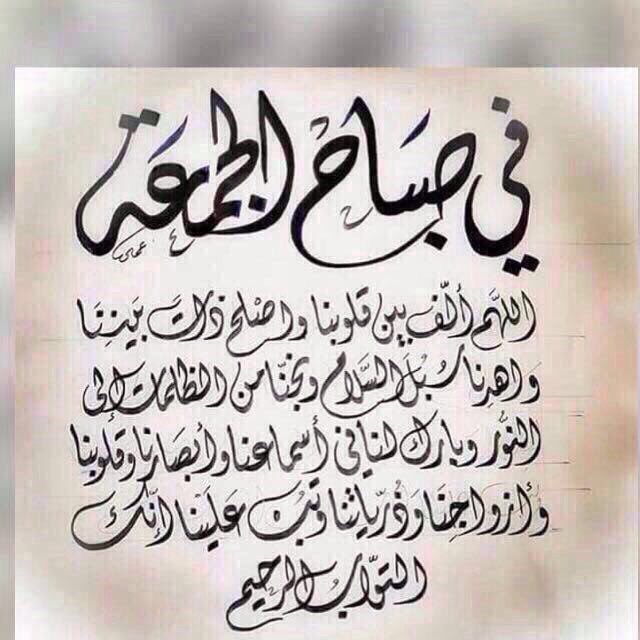 في صباح الجمعة
اللهم ألّف بين قلوبنا واصلح ذات بيننا
واهدنا سبل السلام ونجنا من الظلمات إلى
النور وبارك لنا في أسماعنا وأبصارنا وقلوبنا
وأزواجنا وذرياتنا وتب علينا إنك
التواب الرحيم